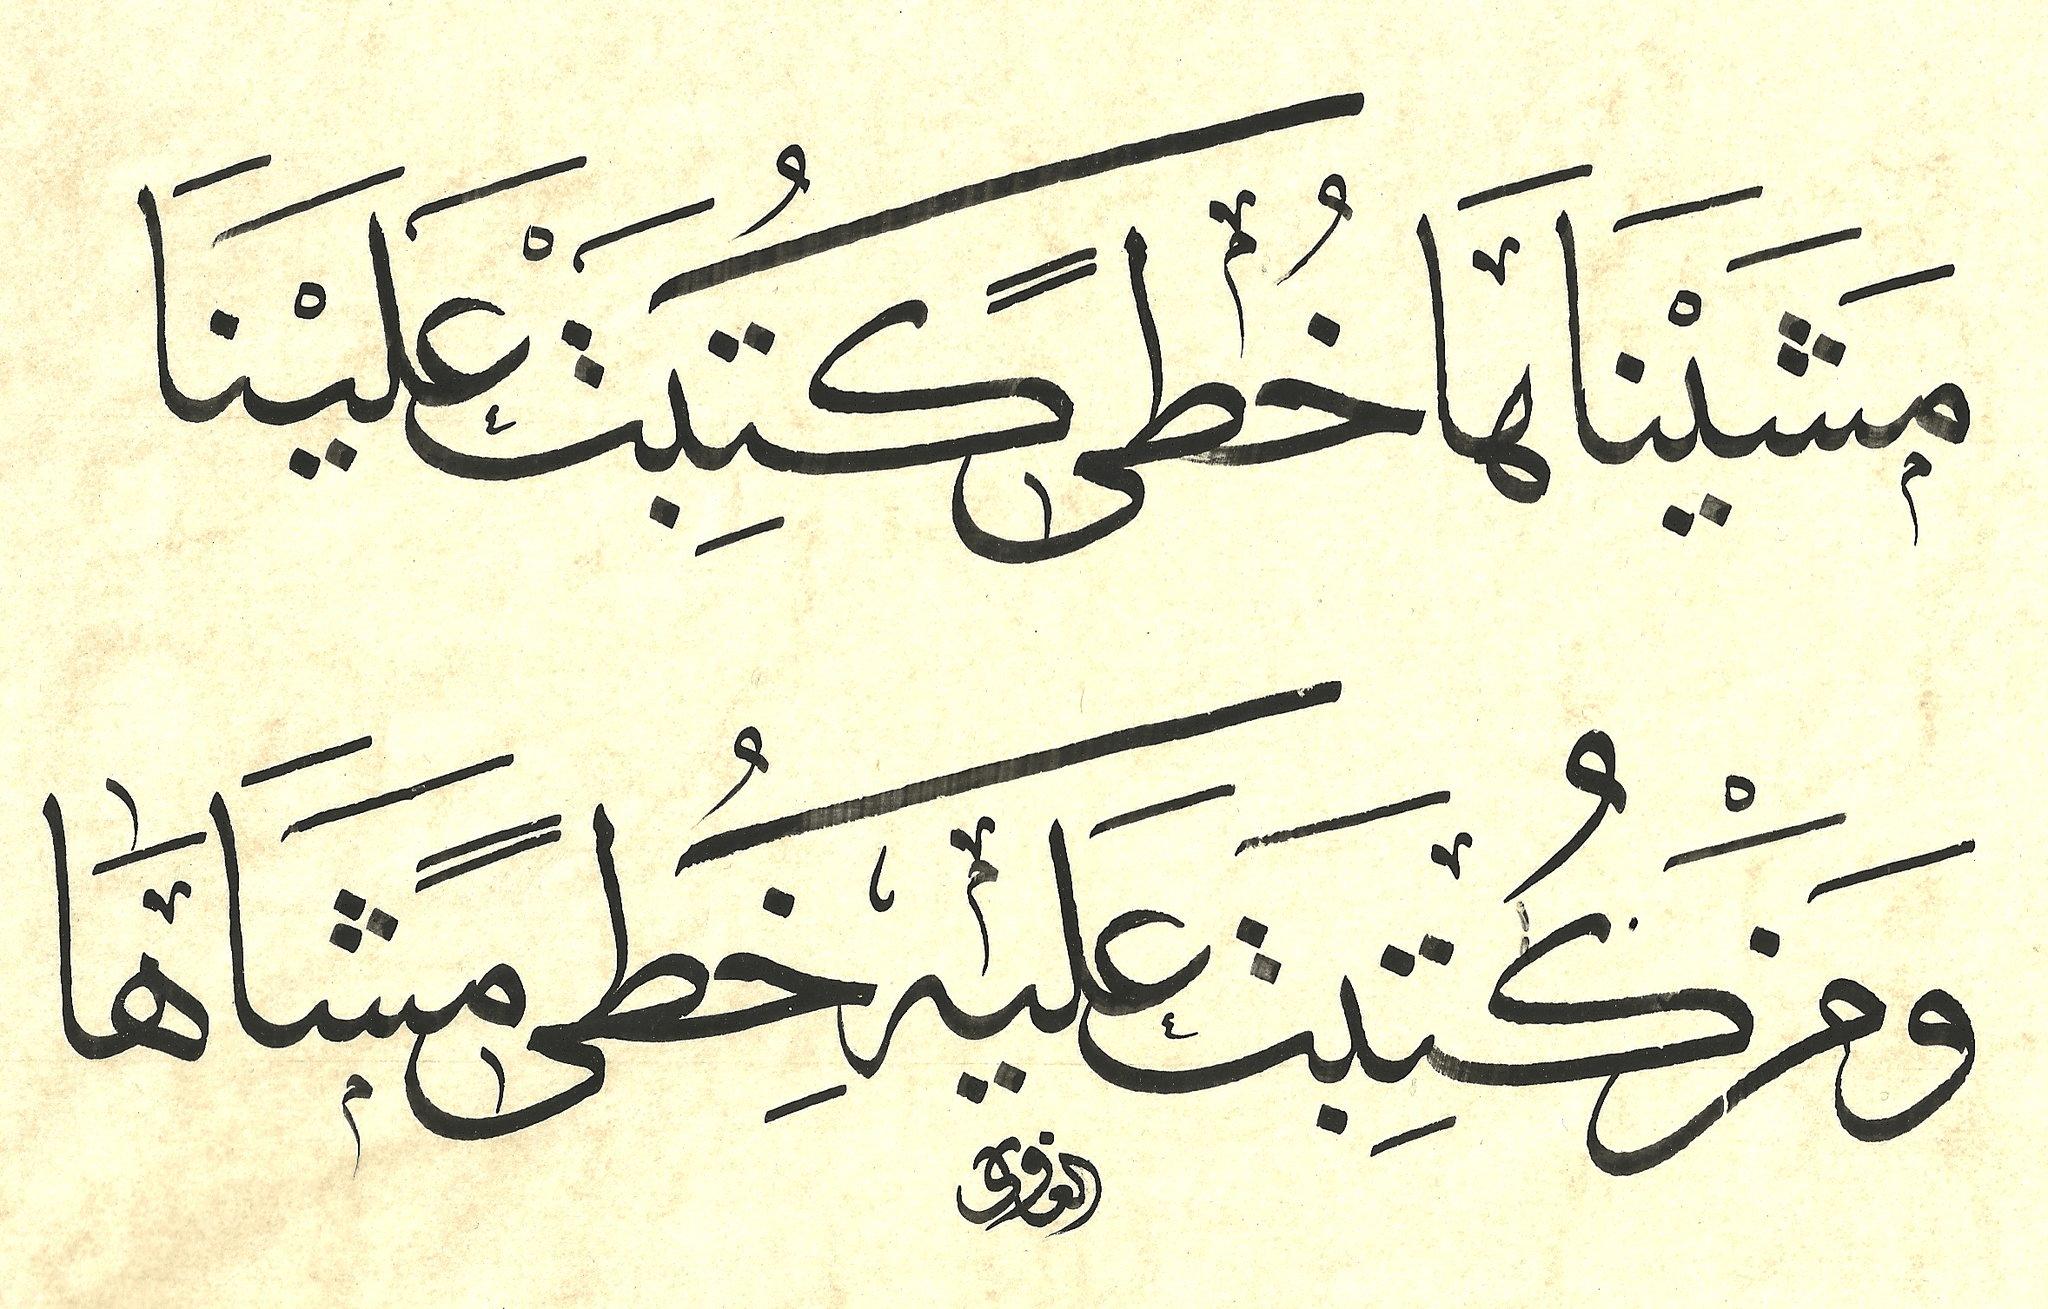 مَشَيْنَاهَا خُطًى كُتِبَتْ عَلَيْنَا
وَمَنْ كُتِبَتْ عَلَيْهِ خُطًى مَشَاهَا